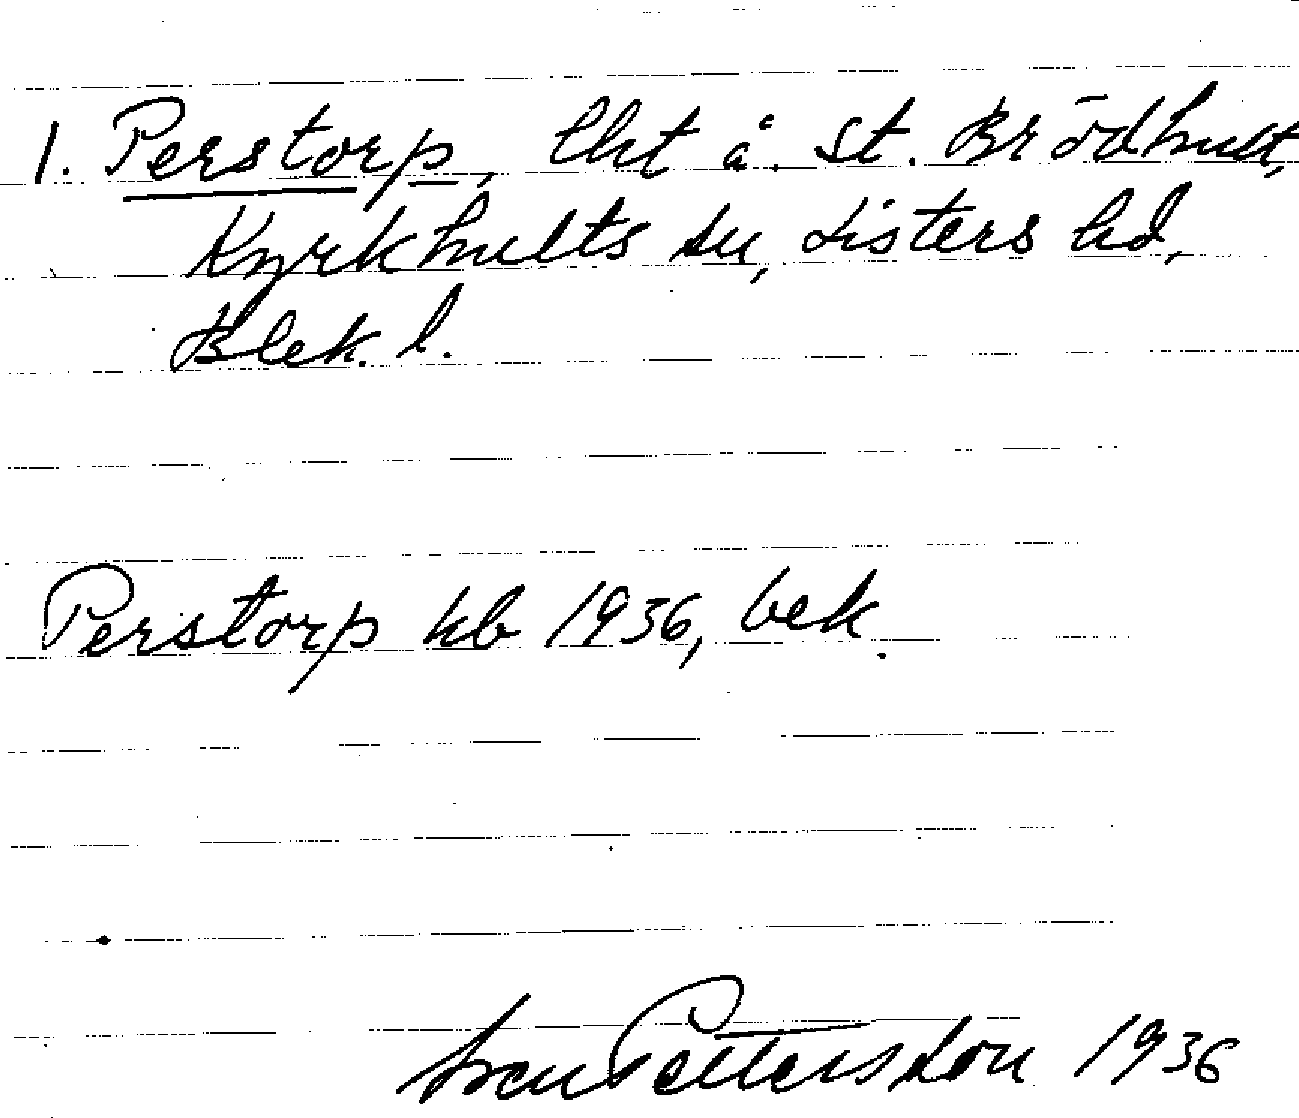 1. Perstorp, lht å. St. Brödhult,
Kyrkhults sn, Listers hd,
Blek. l.
Perstorp kb 1936, bek.
Sven Pettersson 1936